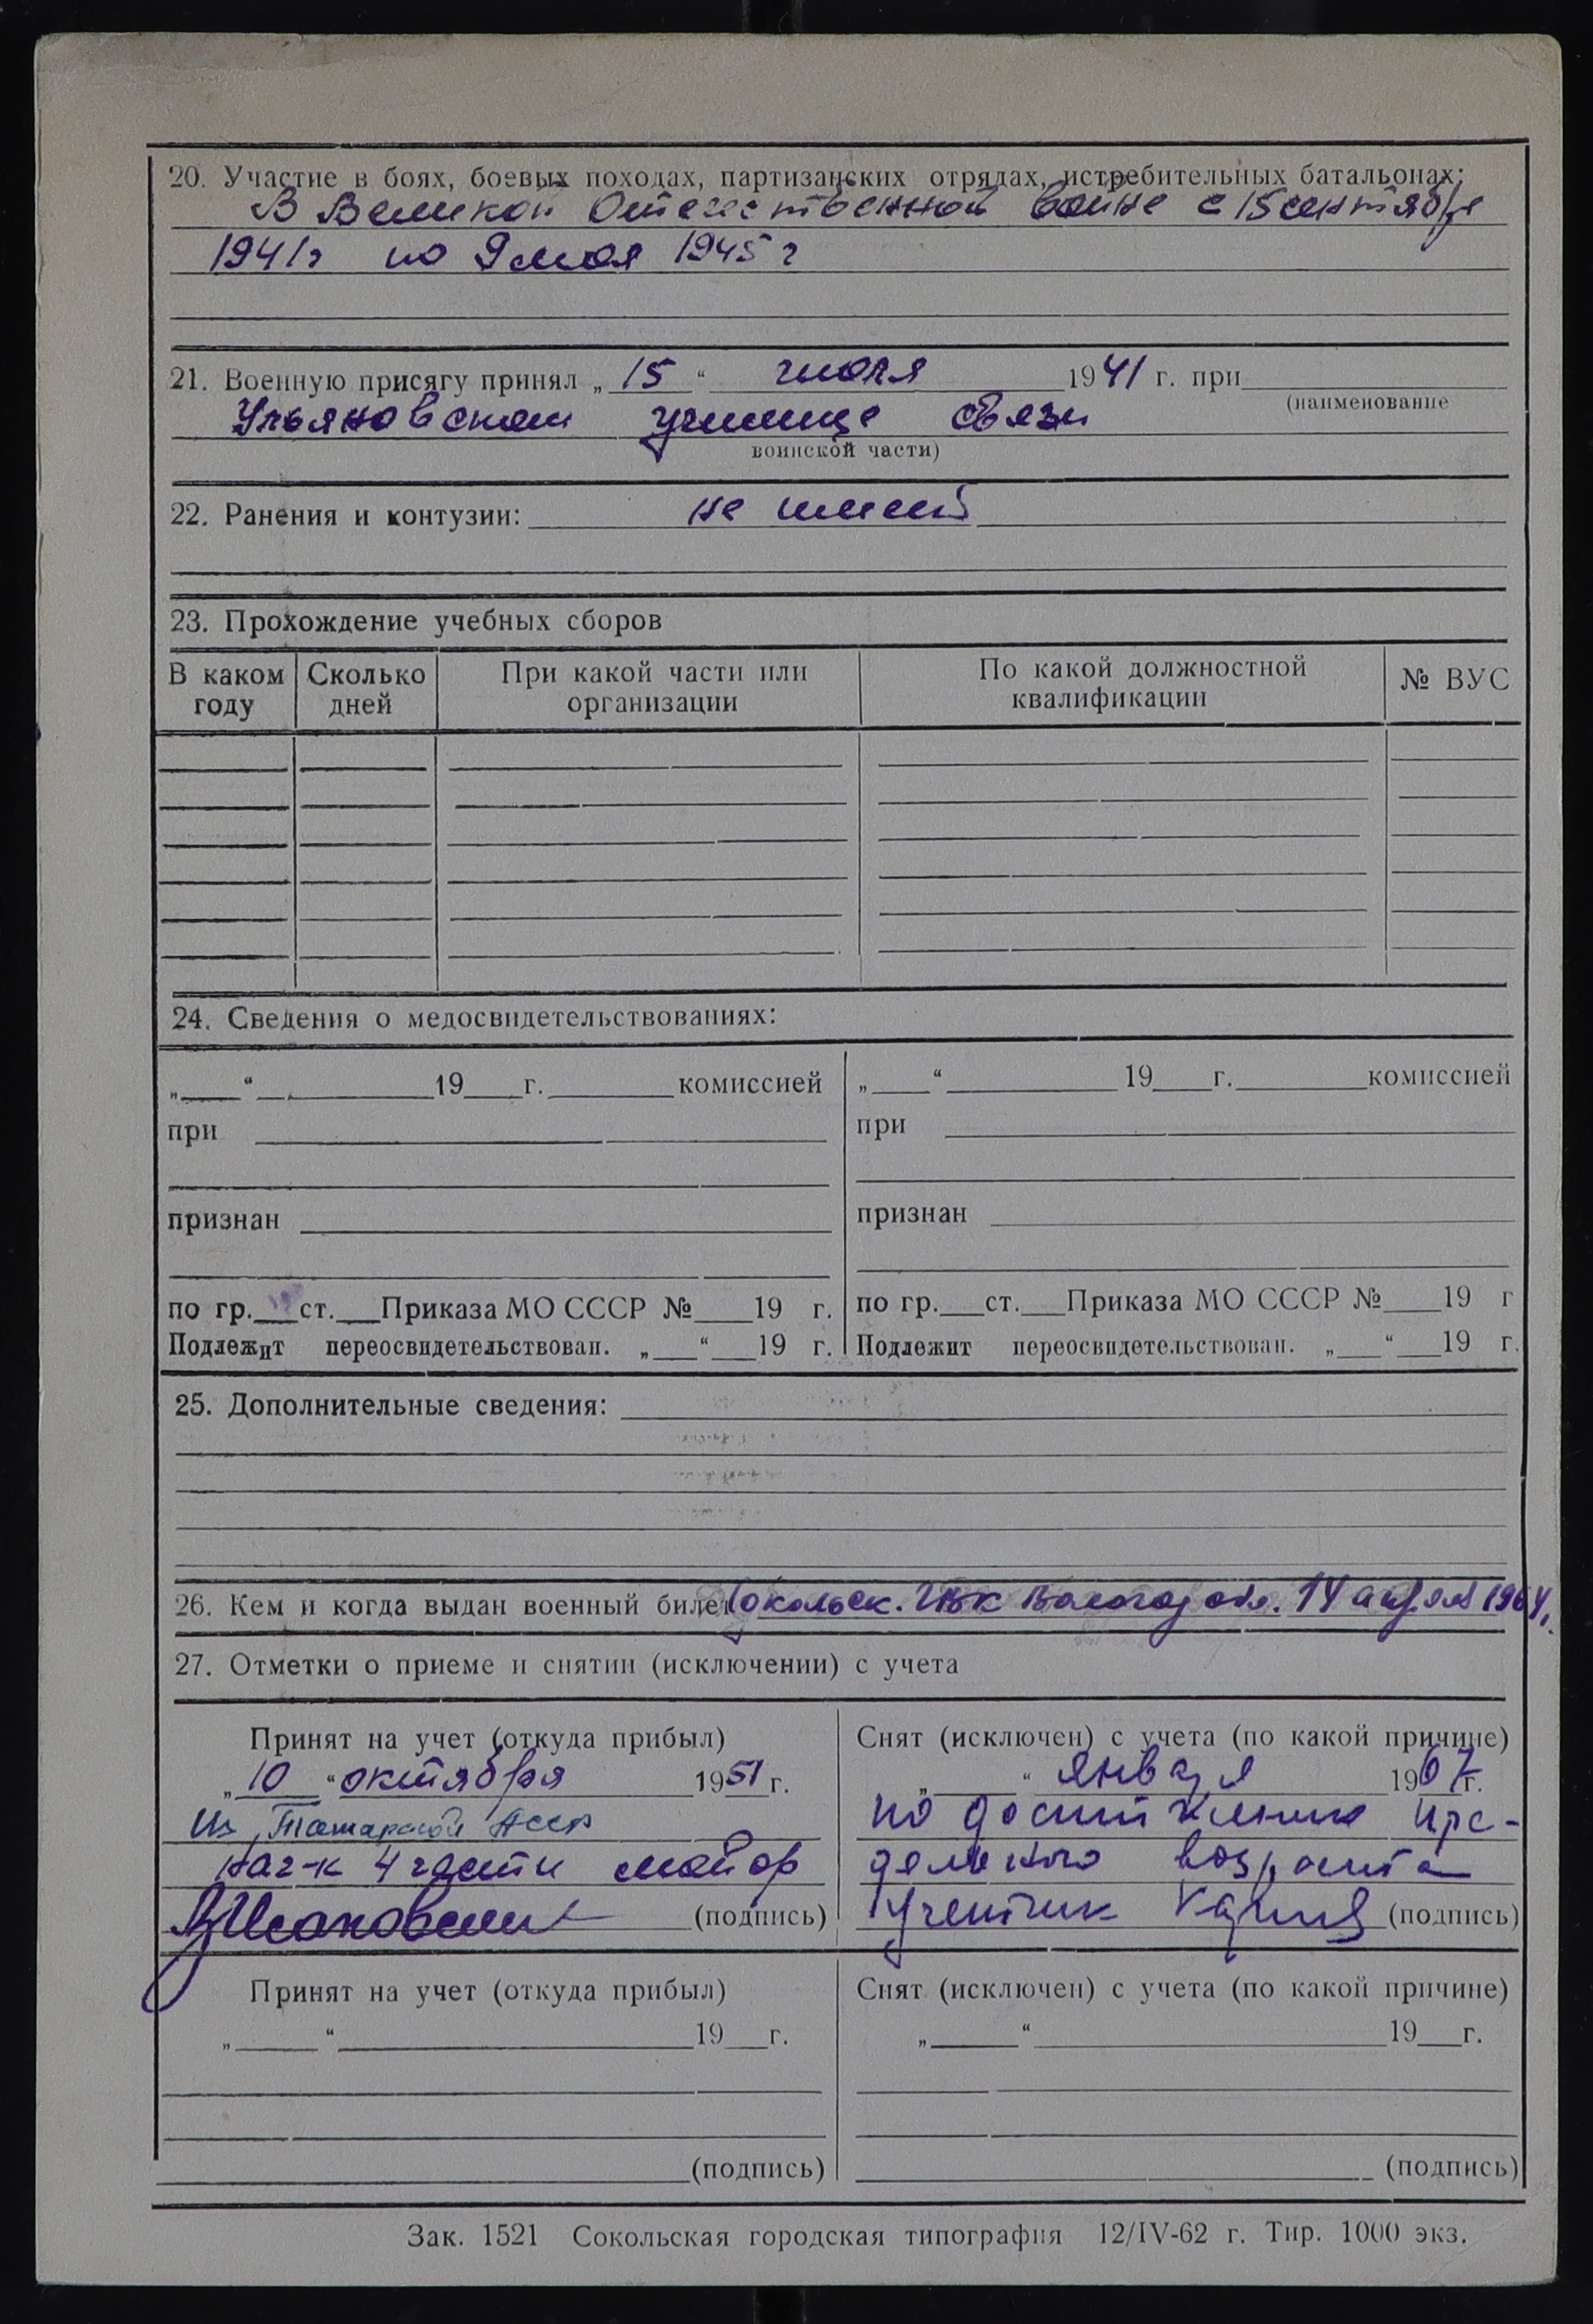 20. Участие в боях, боевых походах, партизанских отрядах, истребительных батальонах:
В Великой Отечественной войне с 15 сентября
1941г по 9 мая 1945 г
21. Военную присягу принял „ 15 “ июля 1941 г. при
(наименование
Ульяновском училище связи
воинской части)
22. Ранения и контузии: не имеет
23. Прохождение учебных сборов
В каком году Сколько дней При какой части или организации По какой должностной квалификации № ВУС
24. Сведения о медосвидетельствованиях:
„ “ 19 г. комиссией „ “ 19 г. комиссией
при при
признан признан
по гр. ст. Приказа МО СССР № 19 г. по гр. ст. Приказа МО СССР № 19 г
Подлежит переосвидетельствован. „ “ 19 г. Подлежит переосвидетельствован. „ “ 19 г.
25. Дополнительные сведения:
26. Кем и когда выдан военный билет Сокольск. ГВК Вологод обл. 14 апреля 1964г.
27. Отметки о приеме и снятии (исключении) с учета
Принят на учет (откуда прибыл) Снят (исключен) с учета (по какой причине)
„ 10 “ октября 1951 г. „ “ января 1967г.
Из Татарской АССР по достижению пре-
нач-к 4 части майор дельного возраста
(подпись) Учетчик (подпись)
Принят на учет (откуда прибыл) Снят (исключен) с учета (по какой причине)
„ “ 19 г. „ “ 19 г.
(подпись) (подпись)
Зак. 1521 Сокольская городская типография 12/IV-62 г. Тир. 1000 экз.